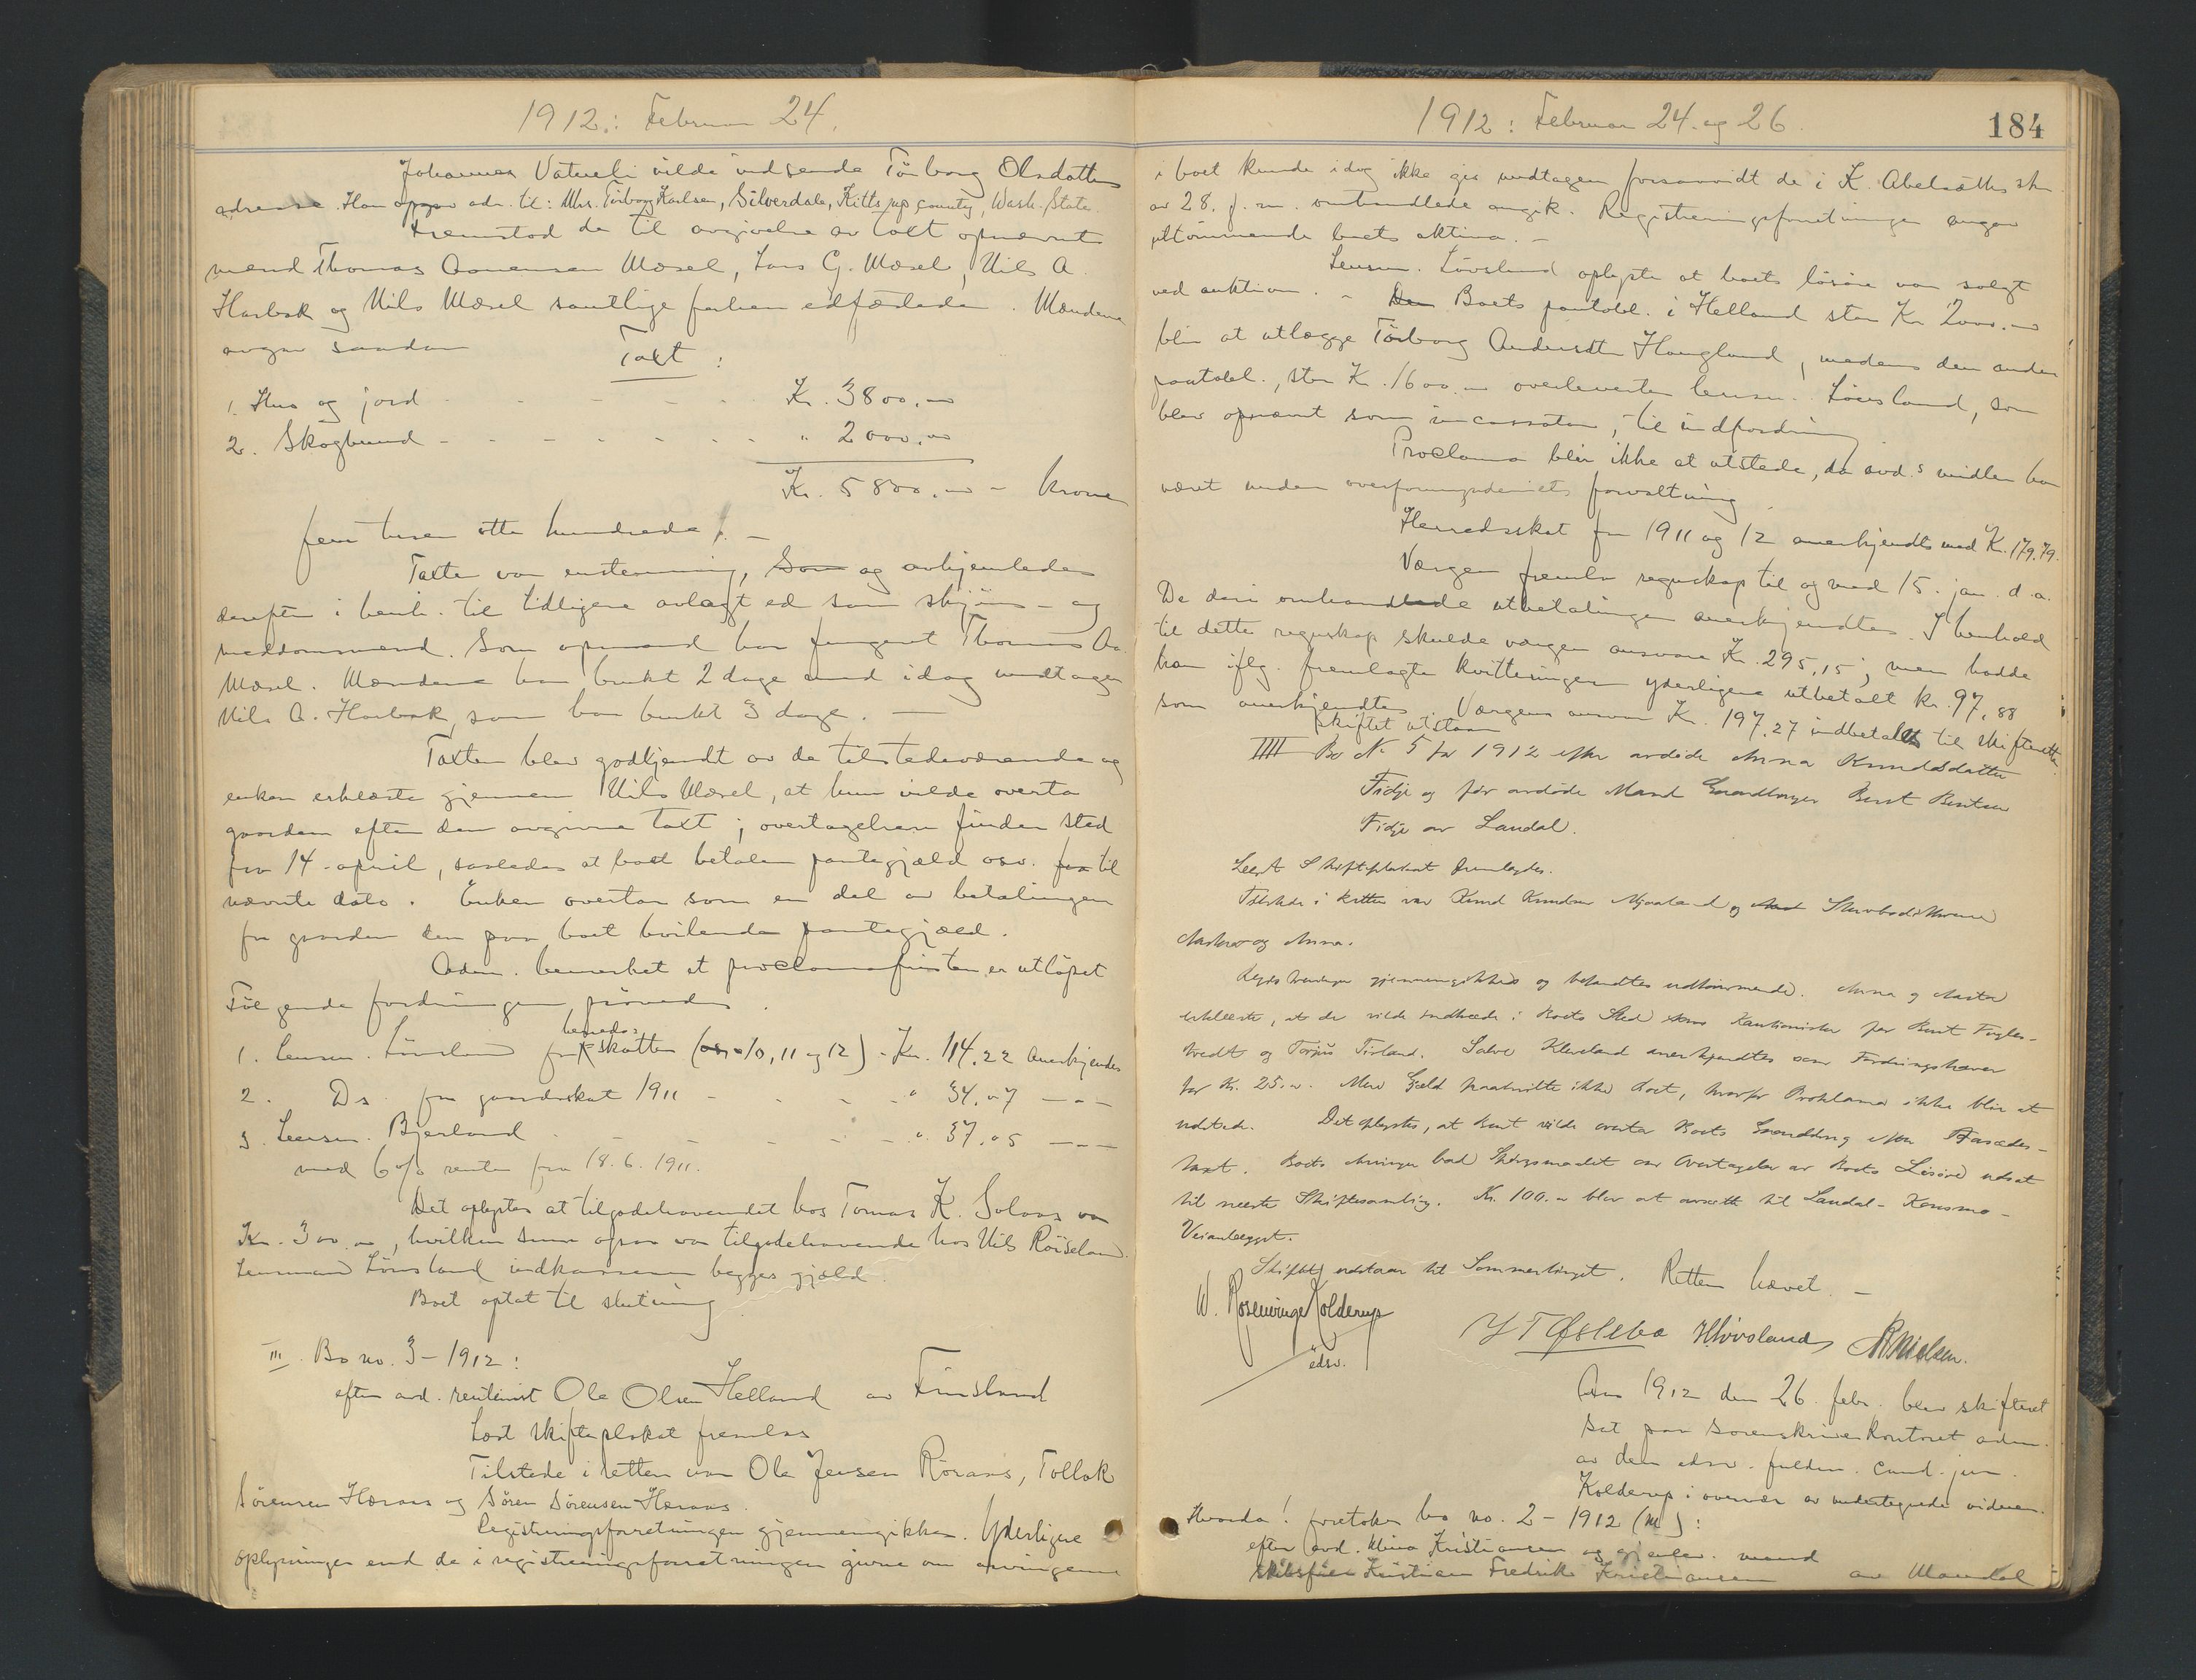 1912: Februar 24.
Johannes Vatneli vilde indsende Torborg Olsdatters
adresse. Han opgav adr. til: Mrs. Torborg Karlsen, Silverdale, Kittsup county, Wash. State.
Fremstod de til avgivelse av taxt opnævnte
mænd Thomas Aanensen Mæsel, Lars G. Mæsel, Nils A.
Harbak og Nils Mæsel samtlige forhen edfæstede. Mændene
avgav saadan
Taxt:
1. Hus og jord - - - Kr. 3800.00
2. Skogbund - - - - " 2000.00
Kr. 5800.00 - kroner
fem tusen otte hundrede.
Taxten var enstemmig, og avhjemledes
derefter i henh. til tidligere avlagt ed som skjøns- og
meddomsmænd. Som opmand har fungert Thomas Aa.
Mæsel. Mændene har brukt 2 dage med idag undtagen
Nils A. Harbak, som har brukt 3 dage. —
Taxten blev godkjendt av de tilstedeværende og
enken erklærte gjennem Nils Mæsel, at hun vilde overta
gaarden efter den avgivne taxt; overtagelsen finder sted
fra 14. april, saaledes at boet betaler pantegjæld osv. til
nævnte dato. Enken overtar som en del av betalingen
for gaarden den paa boet hvilende pantegjæld.
Adm. bemerket at proclamafristen er utløpet
Følgende fordringer prøvedes.
1. Lensm. Løvsland for herredsskatter (10, 11 og 12) - Kr. 114.22 anerkjendes
2. Ds. for gaardsskat 1911 - - - " 34.07 — " —
3. Lensm. Bjerland - - - - " 37.05 — " —
med 6% renter fra 18.6.1911.
Det oplystes at tilgodehavendet hos Tomas K. Solaas var
Kr. 300.00, hvilken sum ogsaa var tilgodehavende hos Nils Røiseland.
Lensmand Løvsland indkasserer begges gjæld.
Boet optat til slutning
III. Bo no. 3 - 1912:
efter avd. rentenist Ole Olsen Helland av Finsland
Læst skifteplakat fremlas
Tilstede i retten var Ole Jensen Røraas, Tollak
Sørensen Høraas og Søren Sørensen Høraas.
Registreringsforretningen gjennemgikkes. Yderligere
oplysninger end de i registreringsforretningen givne om arvingerne
1912: Februar 24. og 26.
184
i boet kunde idag ikke gis undtagen forsaavidt de i K. Abelsæths skr.
av 28. f. m. omhandlede angik. Registreringsforretningen angav
uttømmende boets aktiva. —
Lensm. Løvsland oplyste at boets løsøre var solgt
ved auktion. - Boets pantobl. i Helland stor Kr. 2000.00
blir at utlægge Torborg Andersdtr Haugland, medens den anden
pantobl., stor Kr. 1600.00 overleveres lensm. Løvsland, som
blev opnævnt som incassator, til indfordring
Proclama blir ikke at utstede, da avd.s midler har
været under overformynderiets forvaltning
Herredsskat for 1911 og 12 anerkjendtes med Kr. 179.79.
Værgen fremla regnskap til og med 15. jan. d.a.
De deri omhandlede utbetalinger anerkjendtes. I henhold
til dette regnskap skulde værgen ansvare Kr. 295,15; men hadde
han iflg. fremlagte kvitteringer yderligere utbetalt kr. 97,88
som anerkjendtes. Værgens ansvar Kr. 197.27 indbetaltes til skifteretten.
Skiftet utstaar
IIII Bo No 5 for 1912 efter avdøde Anna Knudsdatter
Fidje og før avdøde Mand Gaardbruger Bent Bentsen
Fidje av Laudal.
Læst Skifteplakat fremlagdes.
Tilstede i Retten var Knud Knudsen Mjaaland og Skiebsdøttrene
Aasta og Anna.
Registreringen gjennemgikkes og befandtes udtømmende. Anna og Aasta
erklærte, at de vilde indtræde i Boets Sted som Kautionister for Bent Fugles-
tvedt og Torjus Tisland. Salve Kleveland anerkjendtes som Fordringshaver
for Kr. 25.00. Mere Gjæld paahvilte ikke Boet, hvorfor Proklama ikke blir at
udstede. Det oplystes, at Bent vilde overta Boets Gaardbrug efter Aasædes-
taxt. Boets Arvinger bad Spørgsmaalet om Overtagelse av Boets Løsøre udsat
til næste Skiftesamling. Kr. 100.00 blev at avsætte til Laudal - Konsmo -
Veianlægget.
Skiftet udstaar til Sommertinget. Retten hævet. —
W. Rosenvinge Kolderup
edsv.
Y T Øslebø HLøvsland ANielsen.
Aar 1912 den 26. febr. blev skifteret
sat paa sorenskriverkontoret adm.
av den edsv. fuldm. cand. jur.
Kolderup i overvær av undertegnede vidner.
Hvorda! foretokes bo no. 2 - 1912 (M):
efter avd. Mina Kristiansen og gjenlev. mand
skibsfører Kristian Fredrik Kristiansen av Mandal